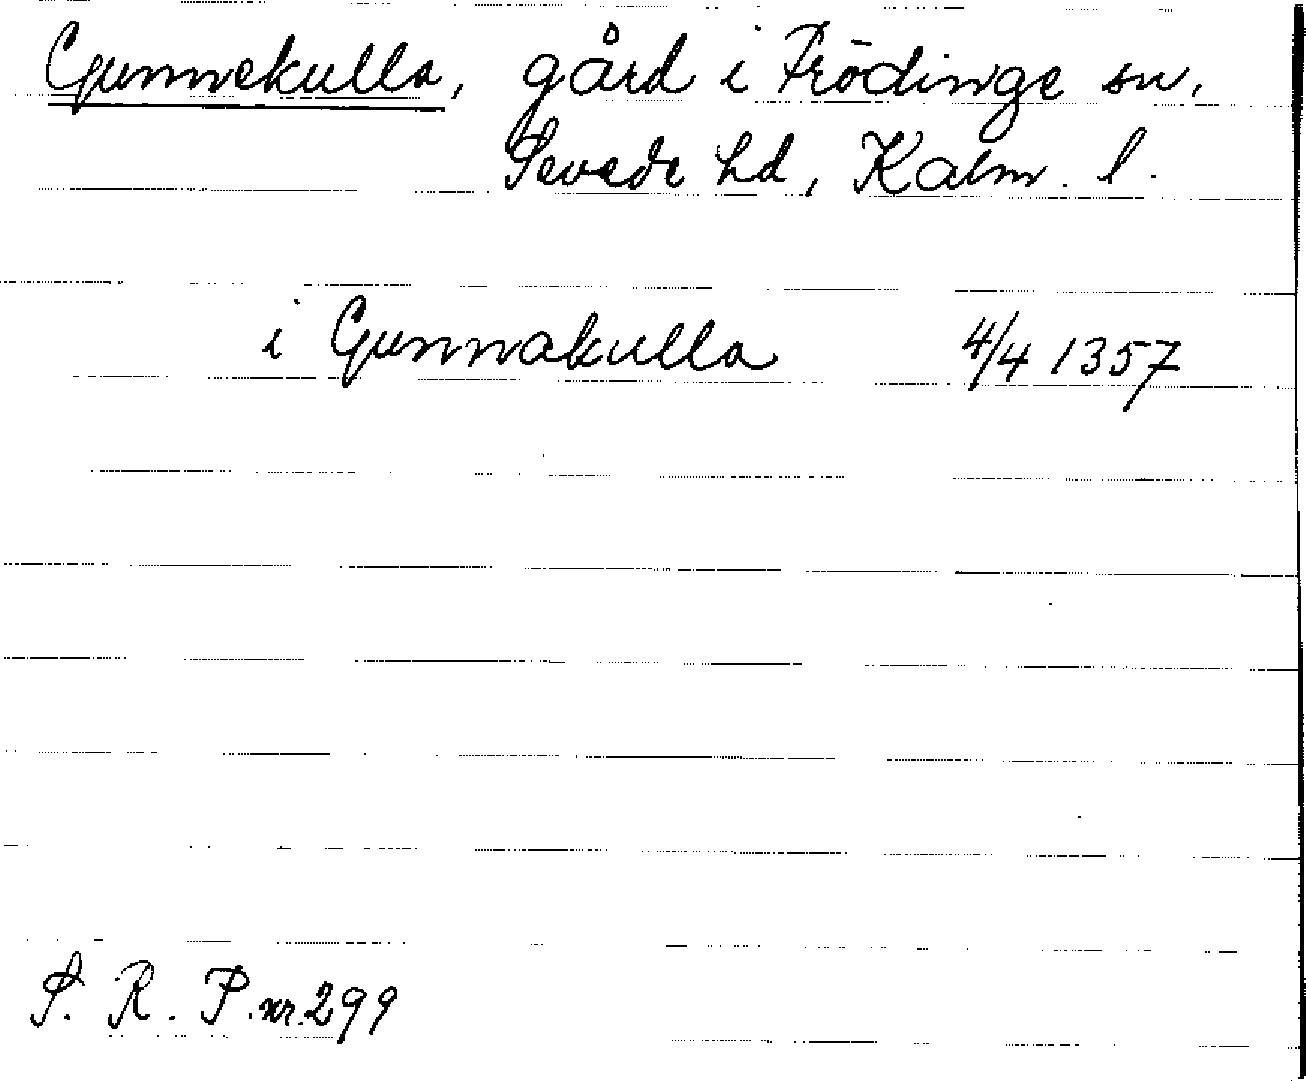 Gunnekulla, gård i Frödinge sn,
Sevede hd, Kalm. l.
i Gunnakulla 4/4 1357
S. R. P. nr. 299